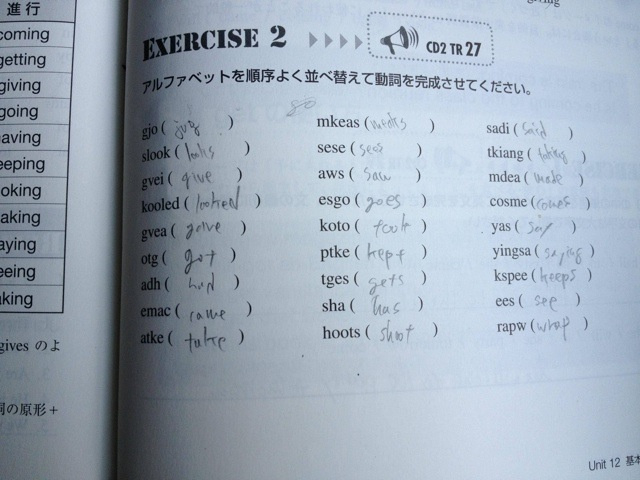 進行
coming
getting
giving
going
aving
eeping
ooking
aking
aying
eeing
aking
gives のよ
詞の原形+
EXERCISE 2 CD2 TR 27
アルファベットを順序よく並べ替えて動詞を完成させてください。
go
gjo ( jog )
slook ( looks )
gvei ( give )
kooled ( looked )
gvea ( gave )
otg ( got )
adh ( had )
emac ( came )
atke ( take )
mkeas ( makes )
sese ( sees )
aws ( saw )
esgo ( goes )
koto ( took )
ptke ( kept )
tges ( gets )
sha ( has )
hoots ( shoot )
sadi ( said )
tkiang ( taking )
mdea ( made )
cosme ( comes )
yas ( say )
yingsa ( saying )
kspee ( keeps )
ees ( see )
rapw ( wrap )
Unit 12 基本